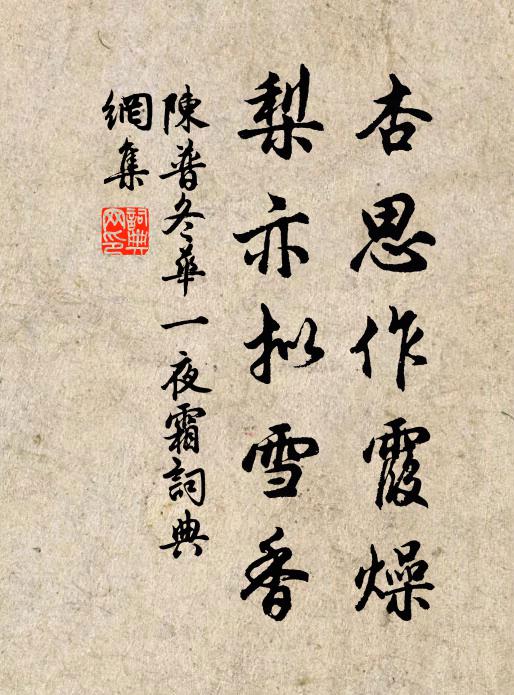 杏思作霞燥
梨亦拟雪香
陳普冬華一夜霜詞典
網集
詞典網印